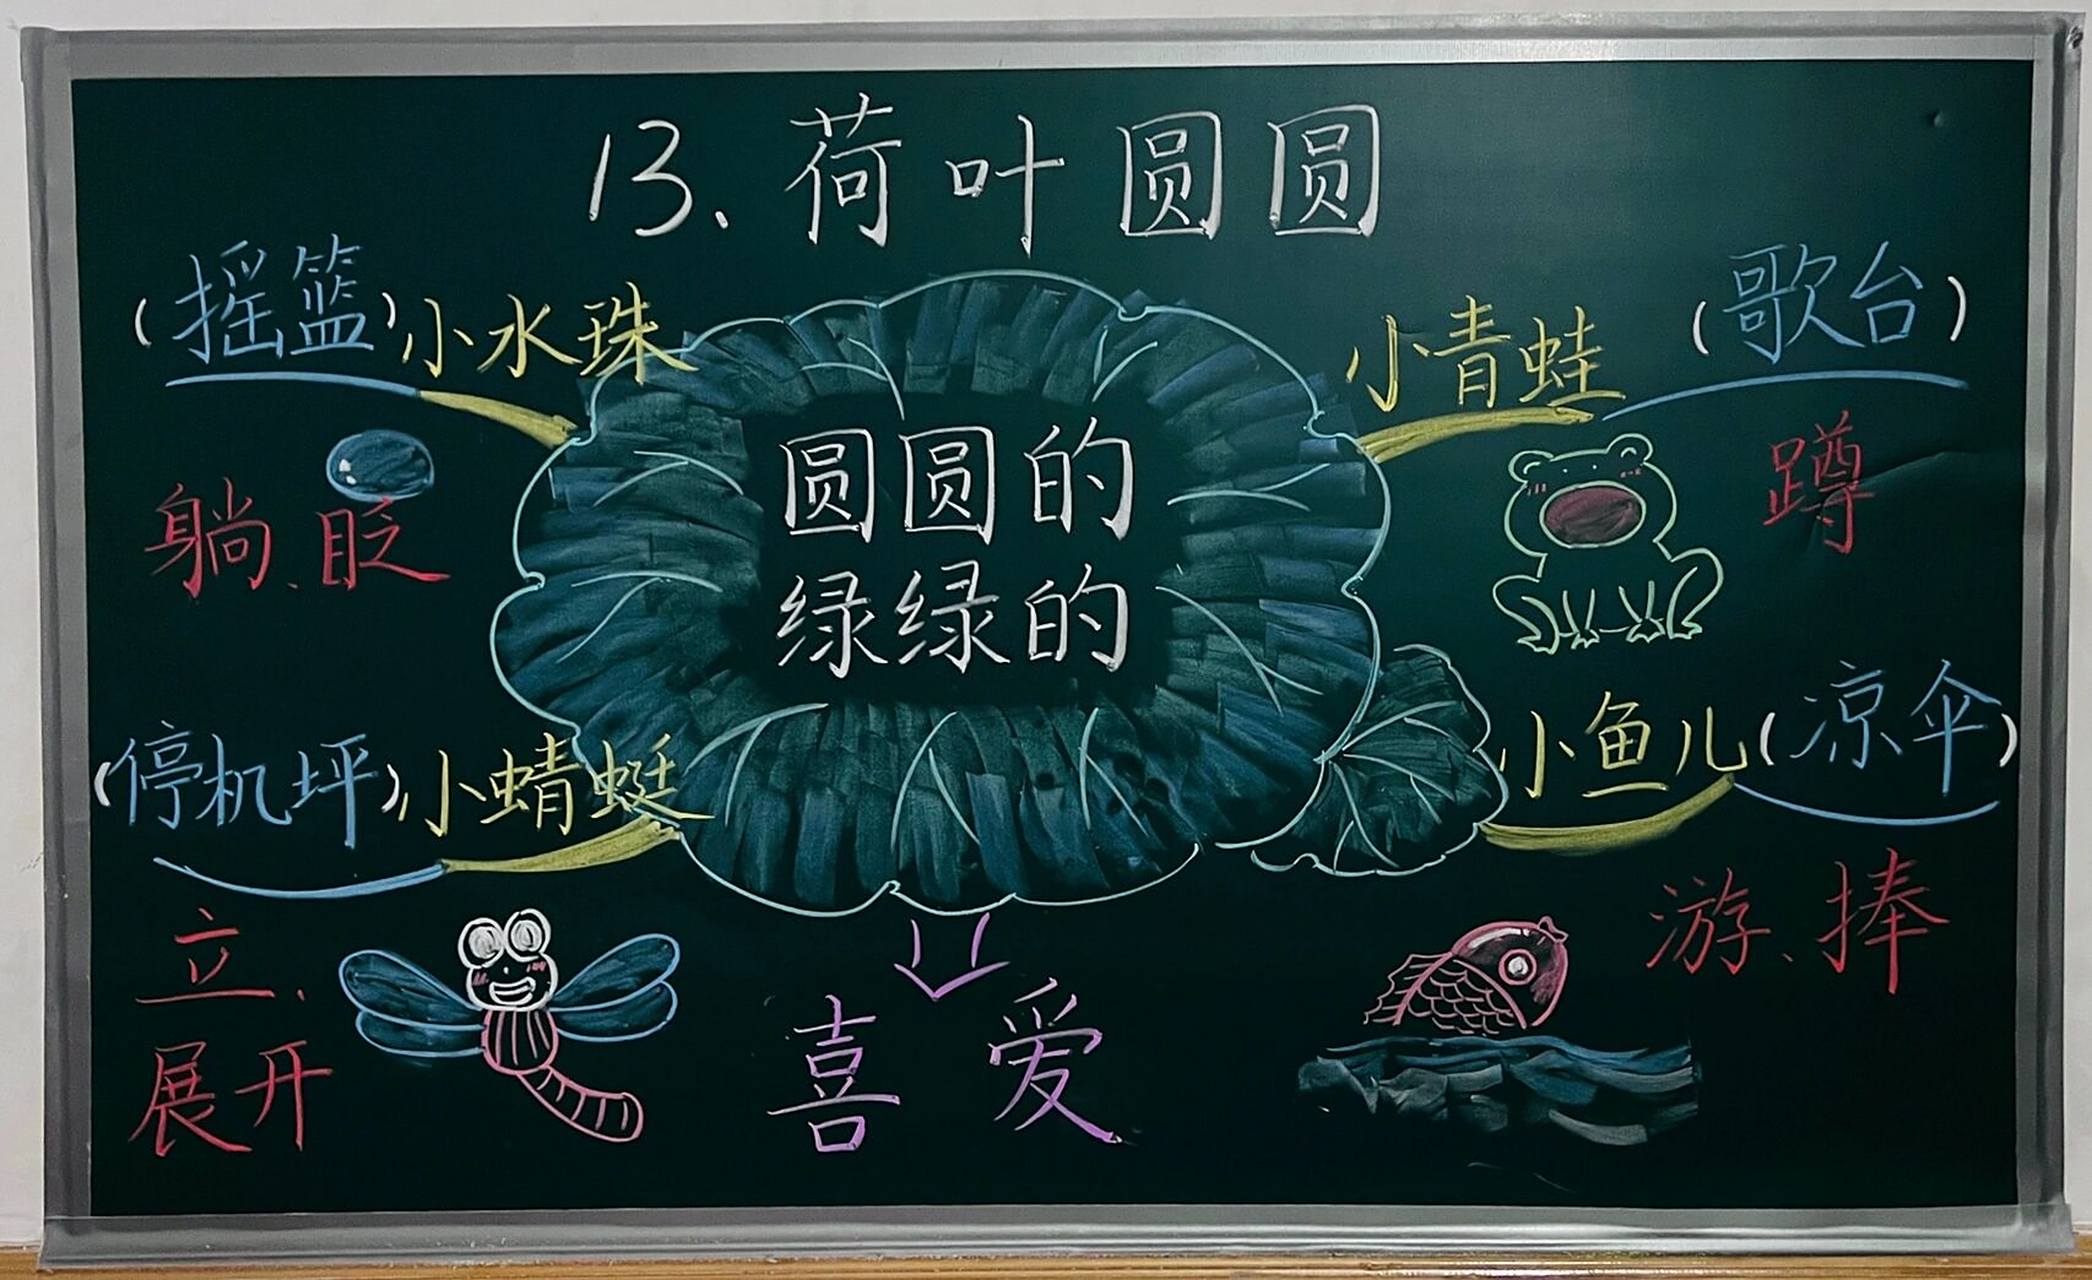 13.荷叶圆圆
(摇篮)小水珠
小青蛙(歌台)
躺、眨
蹲
圆圆的
绿绿的
(停机坪)小蜻蜓
小鱼儿(凉伞)
立、
展开
游、捧
喜爱